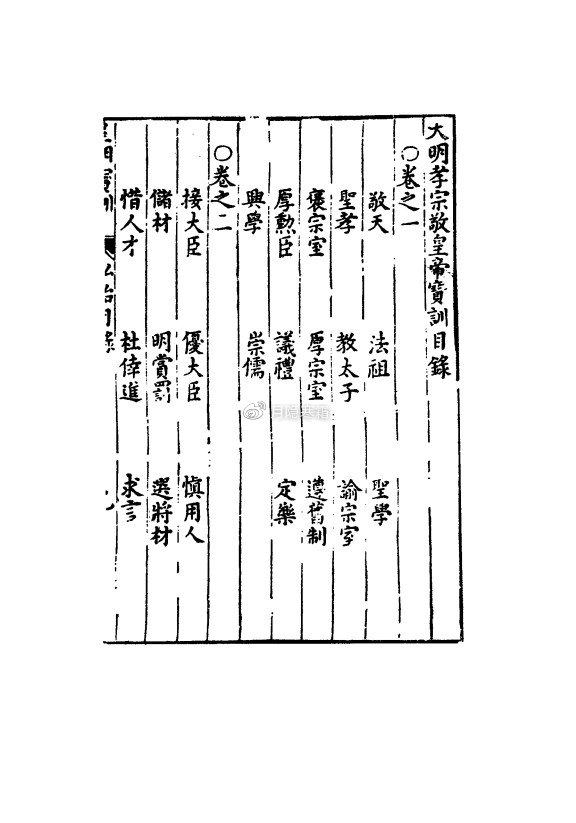 大明孝宗敬皇帝寶訓目錄
○卷之一
敬天　法祖　聖學
聖孝　教太子　諭宗室
褒宗室　厚宗室　遵舊制
厚勲臣　議禮　定樂
興學　崇儒
○卷之二
接大臣　優大臣　慎用人
儲材　明賞罰　選將材
惜人才　杜倖進　求言